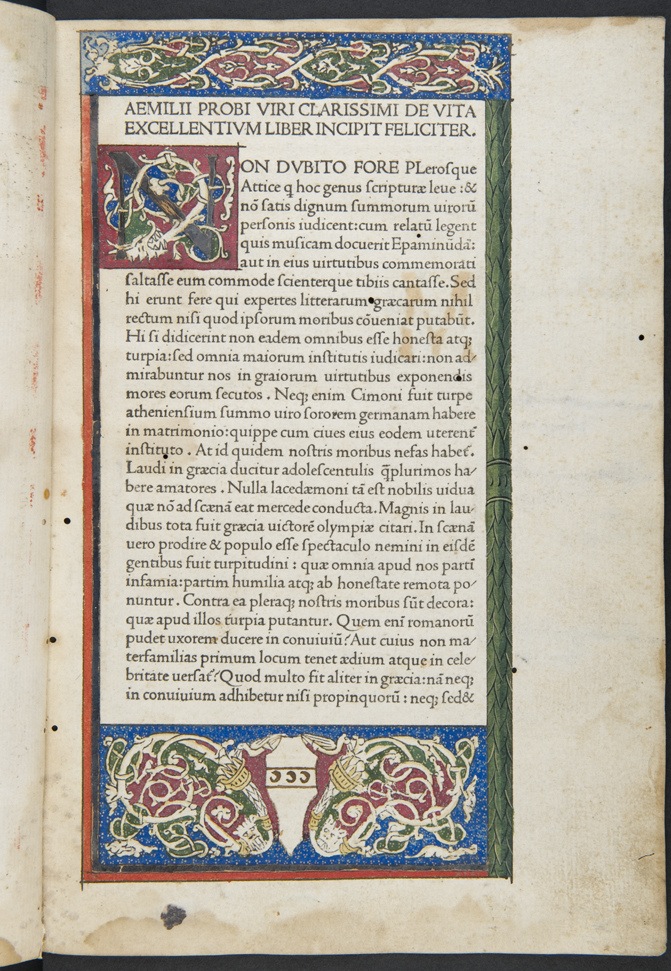 AEMILII PROBI VIRI CLARISSIMI DE VITA
EXCELLENTIVM LIBER INCIPIT FELICITER.
NON DVBITO FORE PLerosque
Attice q hoc genus scripturæ leue :&
nō satis dignum summorum uirorū
personis iudicent:cum relatū legent
quis musicam docuerit Epaminūdā:
aut in eius uirtutibus commemorati
saltasse eum commode scienterque tibiis cantasse. Sed
hi erunt fere qui expertes litterarum græcarum nihil
rectum nisi quod ipsorum moribus cōueniat putabūt.
Hi si didicerint non eadem omnibus esse honesta atq;
turpia:sed omnia maiorum institutis iudicari:non ad⸗
mirabuntur nos in graiorum uirtutibus exponendis
mores eorum secutos . Neq; enim Cimoni fuit turpe
atheniensium summo uiro sororem germanam habere
in matrimonio:quippe cum ciues eius eodem uterent᷑
instituto . At id quidem nostris moribus nefas habet᷑.
Laudi in græcia ducitur adolescentulis q̄plurimos ha⸗
bere amatores . Nulla lacedæmoni tā est nobilis uidua
quæ nō ad scænā eat mercede conducta. Magnis in lau⸗
dibus tota fuit græcia uictorē olympiæ citari. In scænā
uero prodire & populo esse spectaculo nemini in eisdē
gentibus fuit turpitudini : quæ omnia apud nos parti
infamia:partim humilia atq; ab honestate remota po⸗
nuntur . Contra ea pleraq; nostris moribus sūt decora:
quæ apud illos turpia putantur. Quem enī romanorū
pudet uxorem ducere in conuiuiū? Aut cuius non ma⸗
terfamilias primum locum tenet ædium atque in cele⸗
britate uersat᷑? Quod multo fit aliter in græcia:nā neq;
in conuiuium adhibetur nisi propinquorū : neq; sed&